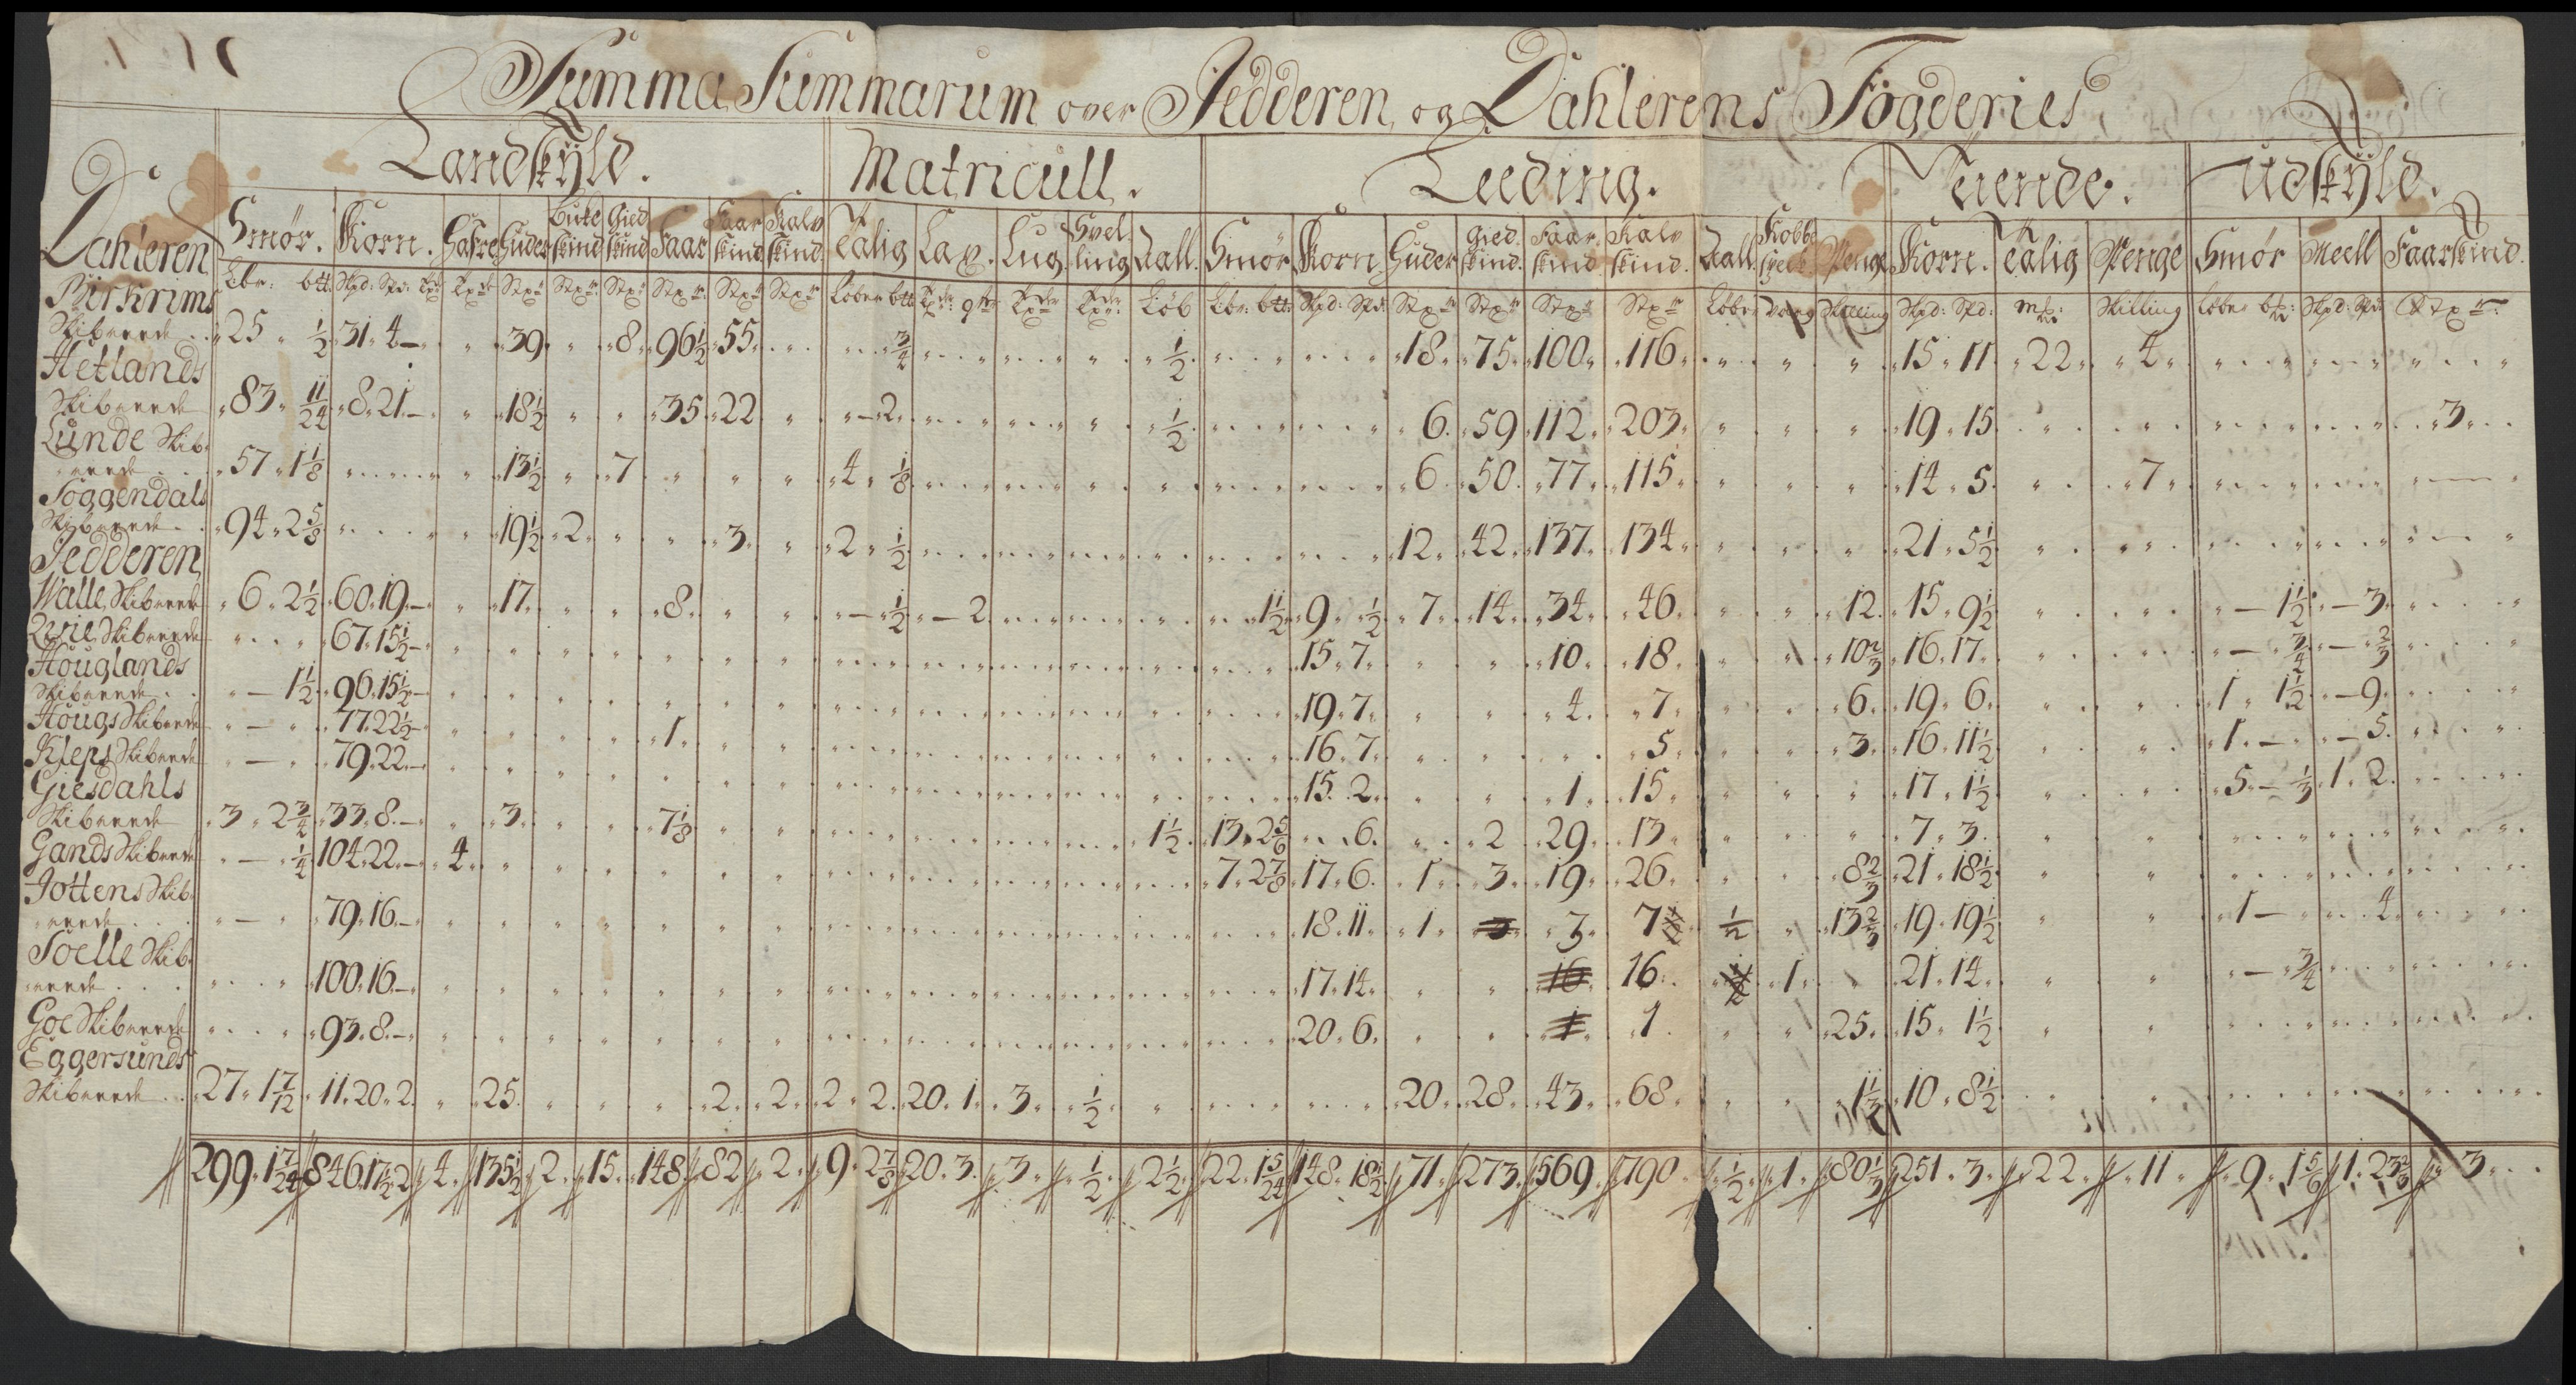 Summa Summarum over Jedderen og Dahlerens Fogderies
Landskÿld. Matricull. Leeding. Tiende. Udskÿld.
Dahleren Smör. Korn. Hafre Huder Buke skind Gied skind Faar Faar skind Kalv skind. Talig Lax. Lug. Hvelling Zall. Smör Korn. Huder gied. skind. Faar skind Kalv skind. Zall. Kobbe Penge Korn. Talig Penge Smör Meell Faarskind.
Birkrims
Skibrede 25 ½ 31 4 — 39 8 96½ 55 ¾ ½ 18 75 100 116 15 11 22 4
Hetlands
Skibrede 83 11/24 8 21 — 18½ 35 22 — 2 ½ 6 59 112 203 19 15 3
Lunde Skib
rede 57 1⅛ 13½ 7 4 ⅛ 6 50 77 115 14 5 7
Soggendals
Skibrede 94 2⅝ 19½ 2 3 2 ½ 12 42 137 134 21 5½
Jedderen
Walle Skibrede 6 2½ 60 19 — 17 8 — ½ — 2 1½ 9 ½ 7 14 34 46 12 15 9½ — 1½ — 3
Qvie Skibrede 67 15½ — 15 7 10 18 10⅔ 16 17 — ¾ — ⅔
Houglands
Skibrede — 1½ 96 15½ — 19 7 4 7 6 19 6 1 1½ — 9
Hougs Skibrede — 77 22½ — 1 16 7 5 3 16 11½ 1 — — 5
Kleps Skibrede — 79 22 — 15 2 1 15 17 1½ 5 — ⅓ 1 2
Giesdahls
Skibrede 3 2¾ 33 8 — 3 7⅛ 1½ 13 2⅚ 6 2 29 13 7 3
Gands Skibrede — ¼ 104 22 — 4 7 2⅞ 17 6 1 3 19 26 8⅔ 21 18½
Jottens Skib
rede — 79 16 — 18 11 1 3 7 ½ 13⅔ 19 19½ 1 — 4
Soelle Skib
rede 100 16 — 17 14 16 16 1 21 14 — ¾
Goe Skibrede 93 8 — 20 6 1 1 25 15 1½
Eggersunds
Skibrede 27 1 7/12 11 20 2 25 2 2 2 2 20 1 3 ½ 20 28 43 68 1⅓ 10 8½
299 1 7/24 846 17½ 2 4 135½ 2 15 148 82 2 9 2⅞ 20 3 3 ½ 2½ 22 1 5/24 148 18½ 71 273 569 790 ½ 1 80⅓ 251 3 22 11 9 1⅚ 1 23⅔ 3